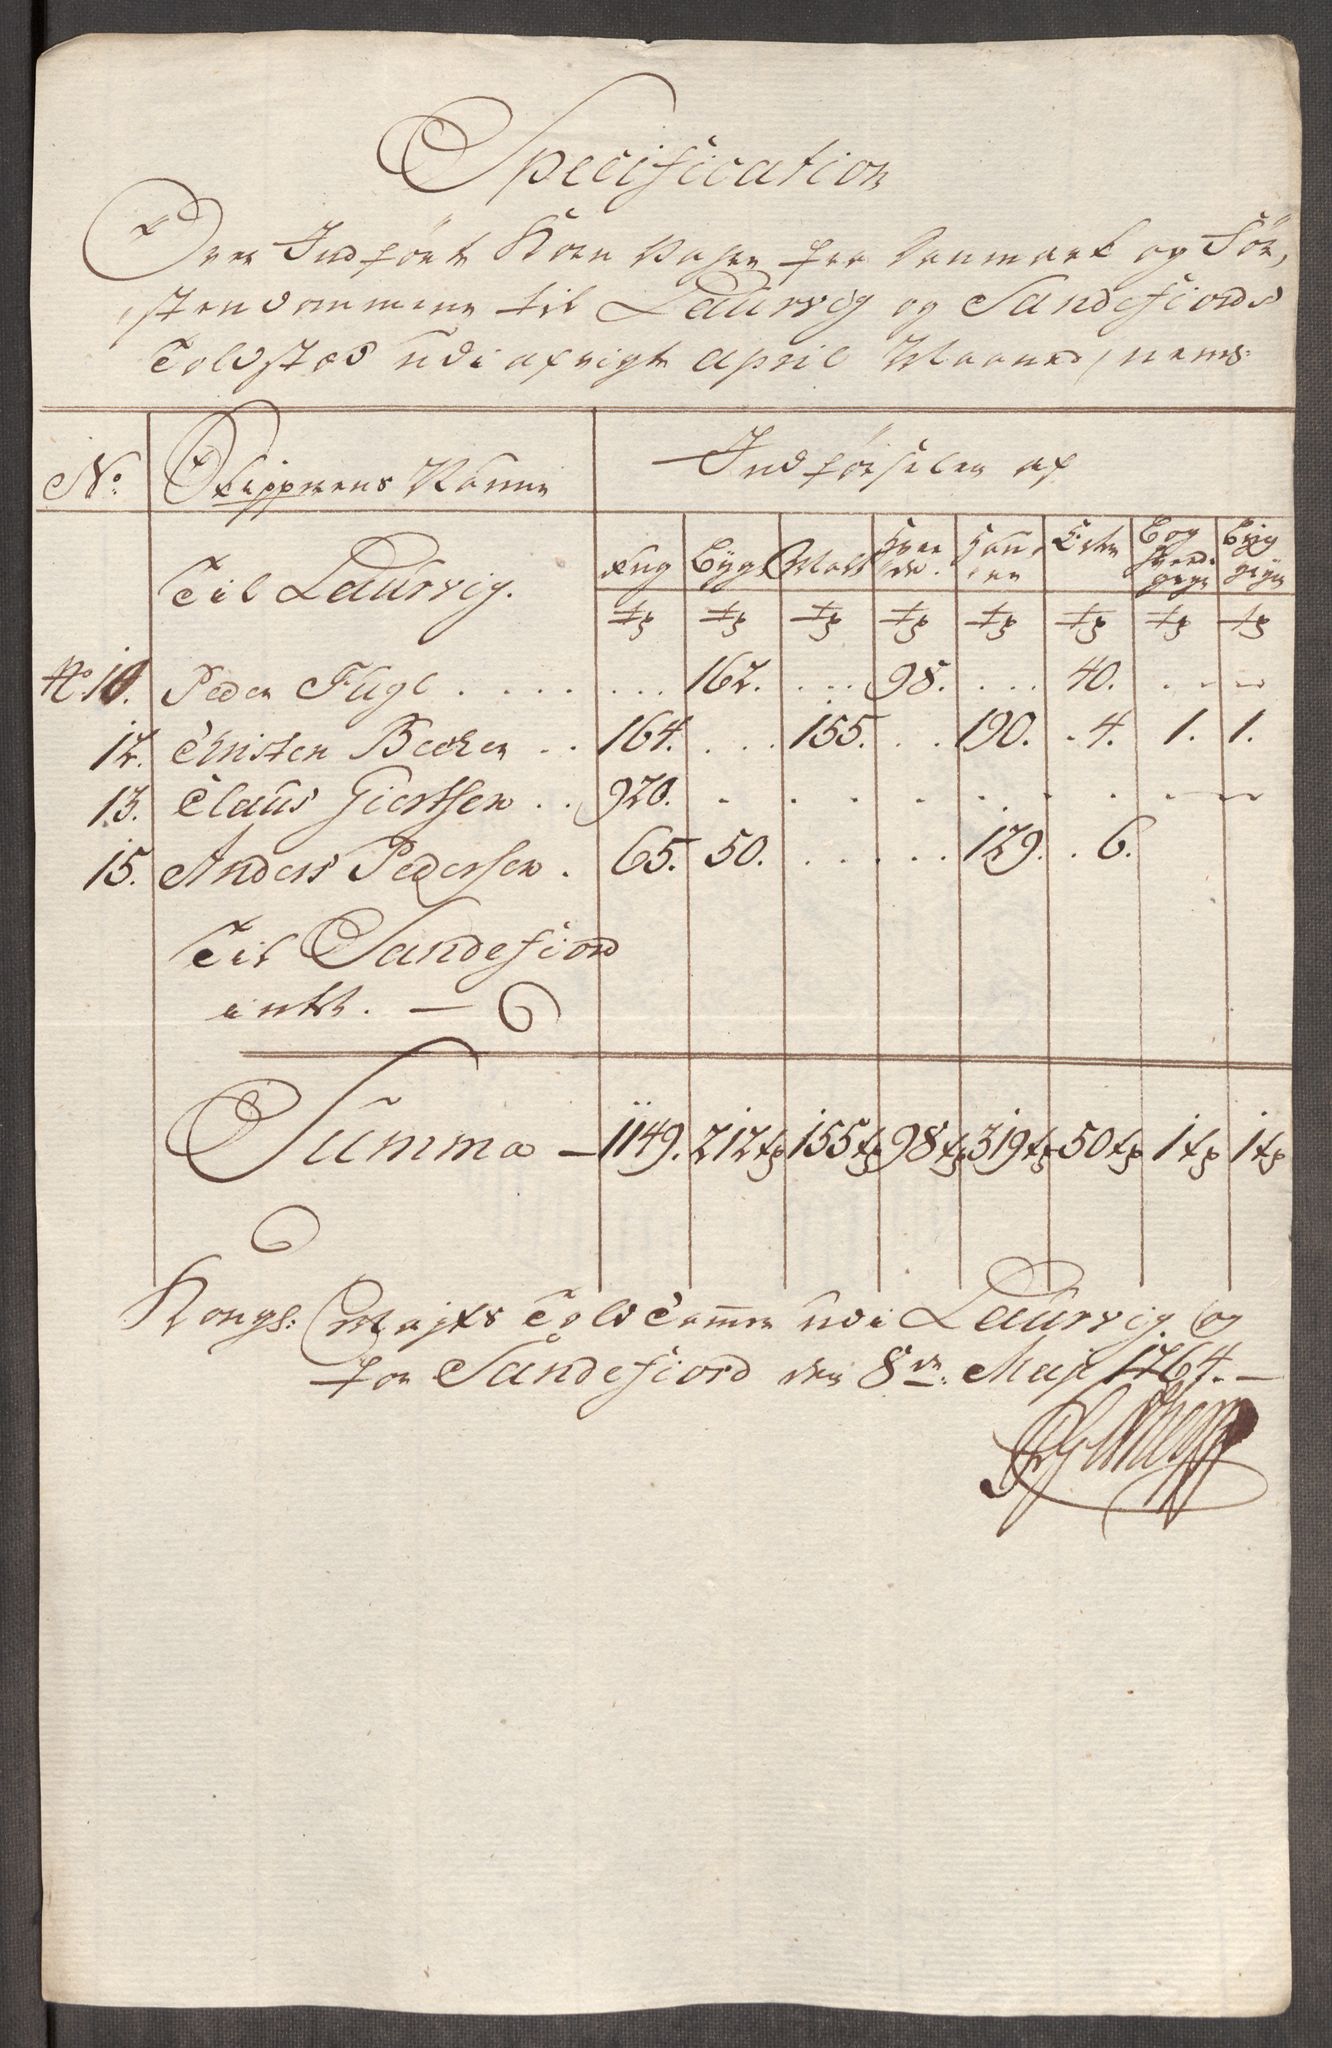 Specification
Over Indført Korn Vahre fra Danmark og Før,
stendømmene til Laurvig og Sandefiords
Toldsted udi afvigte April Maaned, nems:
No. Skippernes Nafne Indførselen af
Til Laurvig. Rug Byg Malt Hvee
de. Hau
ere Erter Bog
hvede
gryn Byg
gryn
tr tr tr tr tr tr tr tr
No. 10. Peder Fugl . . . . . . . . 162. . . . 98. . . . 40. . - - -
12. Christen Becker . . 164. . . . 155. . . 190. . 4. 1. 1.
13. Claus Giertsen . . 920. . . . . . . . . . - - -
15. Anders Pedersen . 65. 50. . . . . . . 129. . 6.
Til Sandefiord
intet. —
Summa — 1149. 212 tr 155 tr 98 tr 319 tr 50 tr 1 tr 1 tr
Kongs: Mayts Told Camer udi Laurvig og
for Sandefiord den 8de: Maji 1764. —